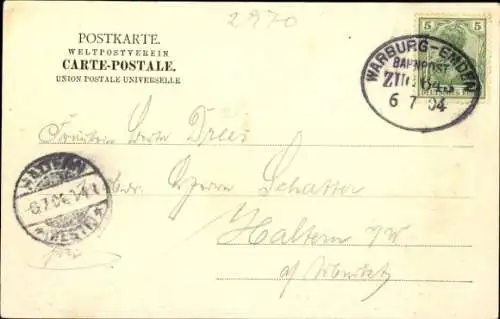 2970
POSTKARTE.
WELTPOSTVEREIN
CARTE-POSTALE.
UNION POSTALE UNIVERSELLE
5 5
WARBURG-EMDEN
BAHNPOST
ZUG 643
6 7 04
DEUTSCHES
Fräulein Drees
HALTERN
6.7.04
* (WESTF) *
Herrn Schatter
Haltern i/W